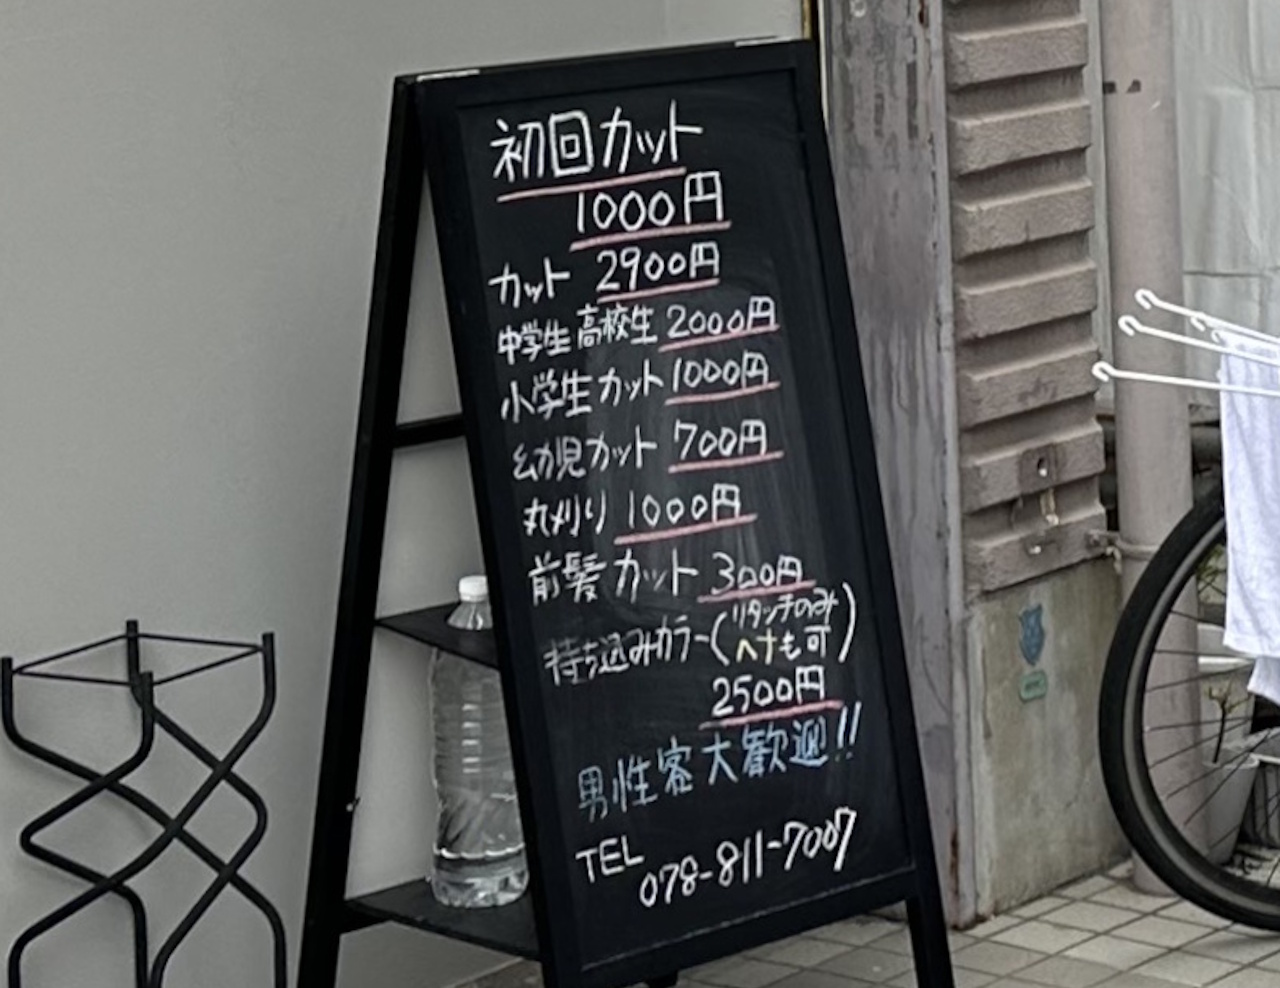 初回カット
1000円
カット 2900円
中学生 高校生 2000円
小学生カット 1000円
幼児カット 700円
丸刈り 1000円
前髪カット 300円
持ち込みカラー(リタッチのみ
ヘナも可)
2500円
男性客大歓迎!!
TEL
078-811-7007